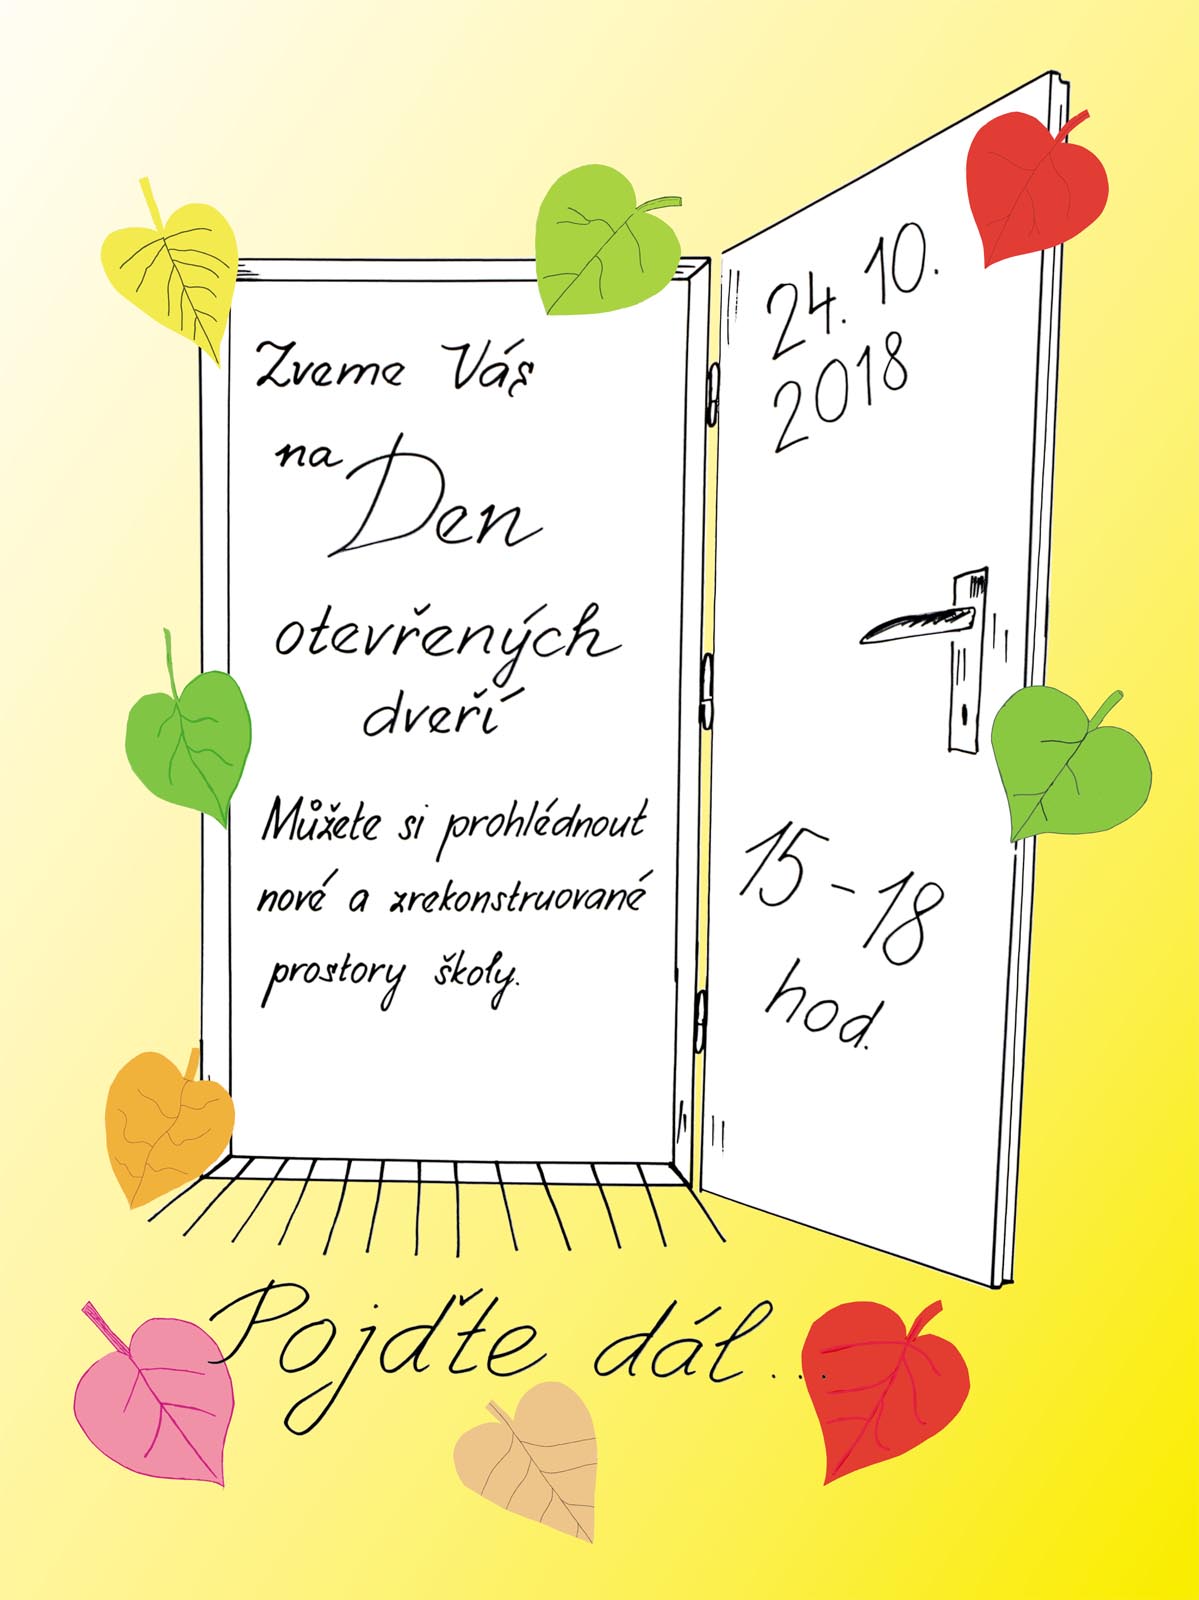 Zveme Vás
na Den
otevřených
dveří
Můžete si prohlédnout
nové a zrekonstruované
prostory školy.
24. 10.
2018
15 - 18
hod.
Pojďte dál...